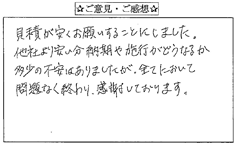 ☆ご意見・ご感想☆
見積が安くお願いすることにしました。
他社より安い分納期や施行がどうなるか
多少の不安はありましたが、全てにおいて
問題なく終わり、感謝しております。